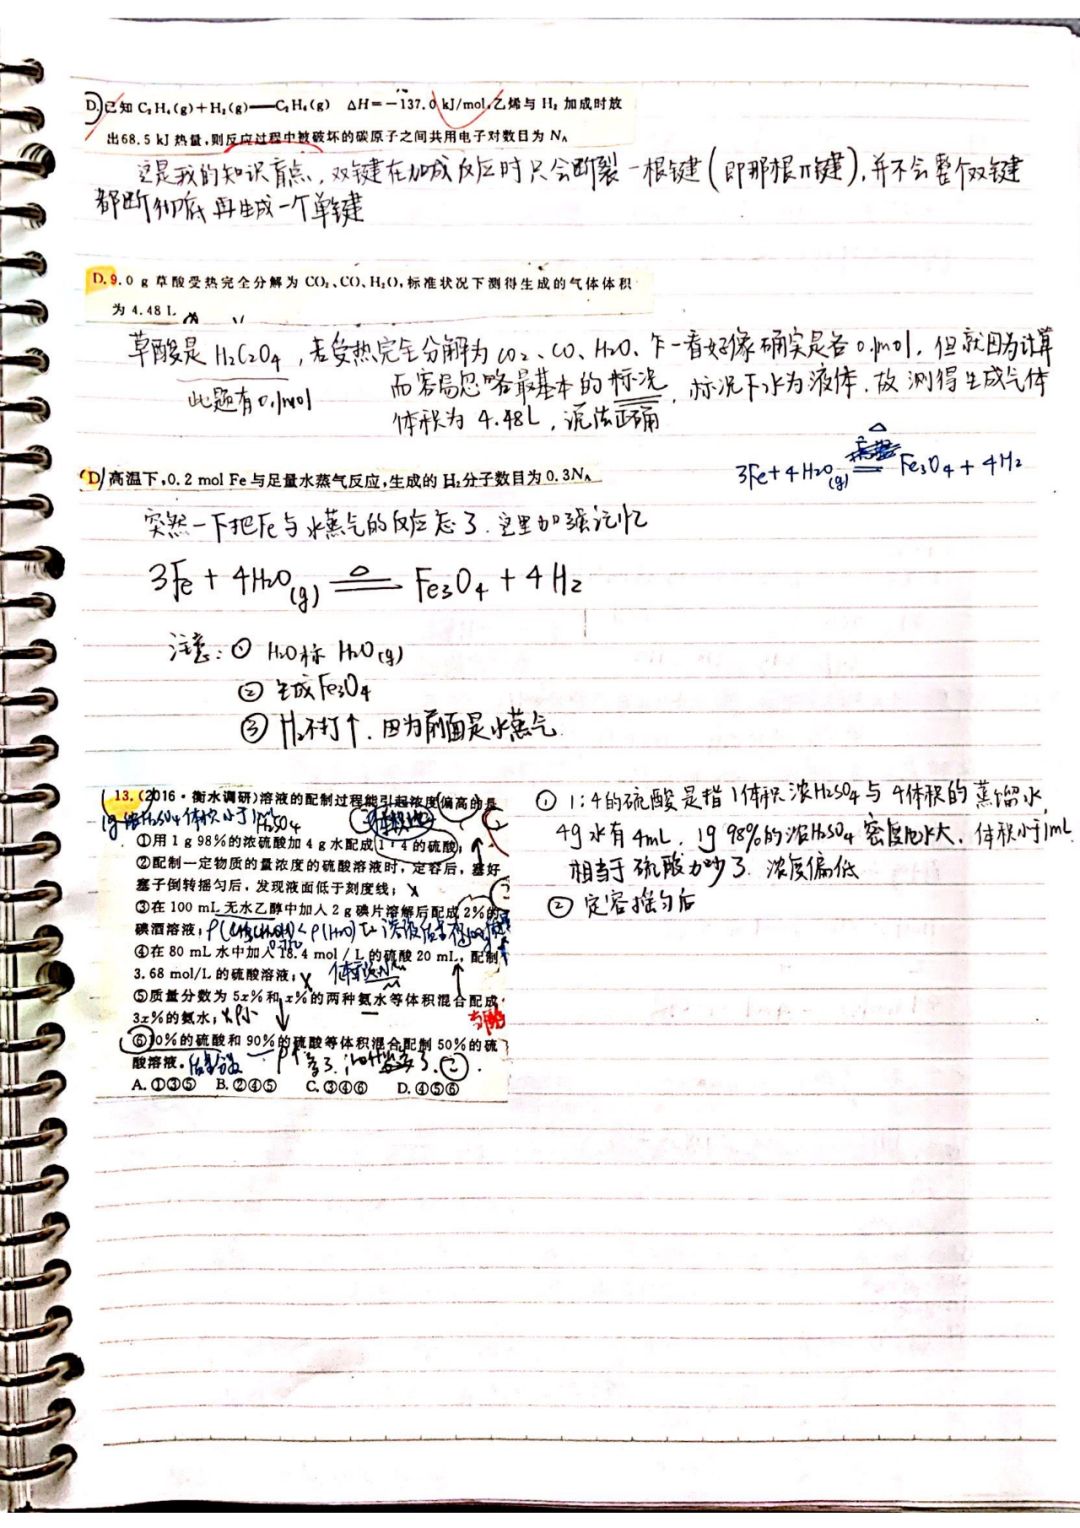 D.已知 C₂H₄(g)+H₂(g)══C₂H₆(g) ΔH=-137.0 kJ/mol,乙烯与 H₂ 加成时放
出68.5 kJ 热量,则反应过程中被破坏的碳原子之间共用电子对数目为 Nᴀ
这是我的知识盲点,双键在加成反应时只会断裂一根键(即那根π键),并不会整个双键
都断彻底再生成一个单键
D.9.0 g 草酸受热完全分解为 CO₂、CO、H₂O,标准状况下测得生成的气体体积
为 4.48 L
草酸是 H₂C₂O₄,若受热完全分解为 CO₂、CO、H₂O、乍一看好像确实是各0.1mol,但就因为计算
此题有0.1mol
而容易忽略最基本的标况,标况下水为液体,故测得生成气体
体积为 4.48L,说法正确
D 高温下,0.2 mol Fe 与足量水蒸气反应,生成的 H₂分子数目为 0.3Nᴀ
3Fe+4H₂O(g) ═△═ Fe₃O₄+4H₂
突然一下把Fe与水蒸气的反应忘了.这里加强记忆
3Fe + 4H₂O(g) ═△═ Fe₃O₄ + 4H₂
注意:① H₂O标 H₂O(g)
② 生成Fe₃O₄
③ H₂不打↑.因为前面是水蒸气.
13.(2016·衡水调研)溶液的配制过程能引起浓度偏高的是
1g 浓H₂SO₄体积小于1mL
H₂SO₄
①用 1 g 98%的浓硫酸加 4 g 水配成 1:4 的硫酸;
②配制一定物质的量浓度的硫酸溶液时,定容后,塞好
塞子倒转摇匀后,发现液面低于刻度线;
③在 100 mL 无水乙醇中加入 2 g 碘片溶解后配成 2%的
碘酒溶液;
ρ(CH₃CH₂OH)<ρ(H₂O)
④在 80 mL 水中加入 18.4 mol/L 的硫酸 20 mL,配制
3.68 mol/L的硫酸溶液;
⑤质量分数为 5x%和 x%的两种氨水等体积混合配成
3x%的氨水;
⑥10%的硫酸和 90%的硫酸等体积混合配制 50%的硫
酸溶液。
A. ①③⑤ B. ②④⑤ C. ③④⑥ D. ④⑤⑥
① 1:4的硫酸是指 1体积浓H₂SO₄与 4体积的蒸馏水,
4g水有 4mL, 1g 98%的浓H₂SO₄密度比水大,体积小于1mL
相当于硫酸加少了.浓度偏低
② 定容摇匀后